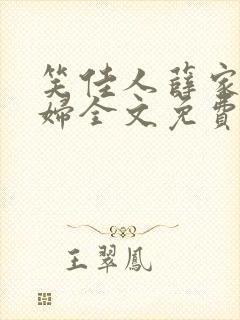 笑佳人薛家
婦全文免費
王翠鳳